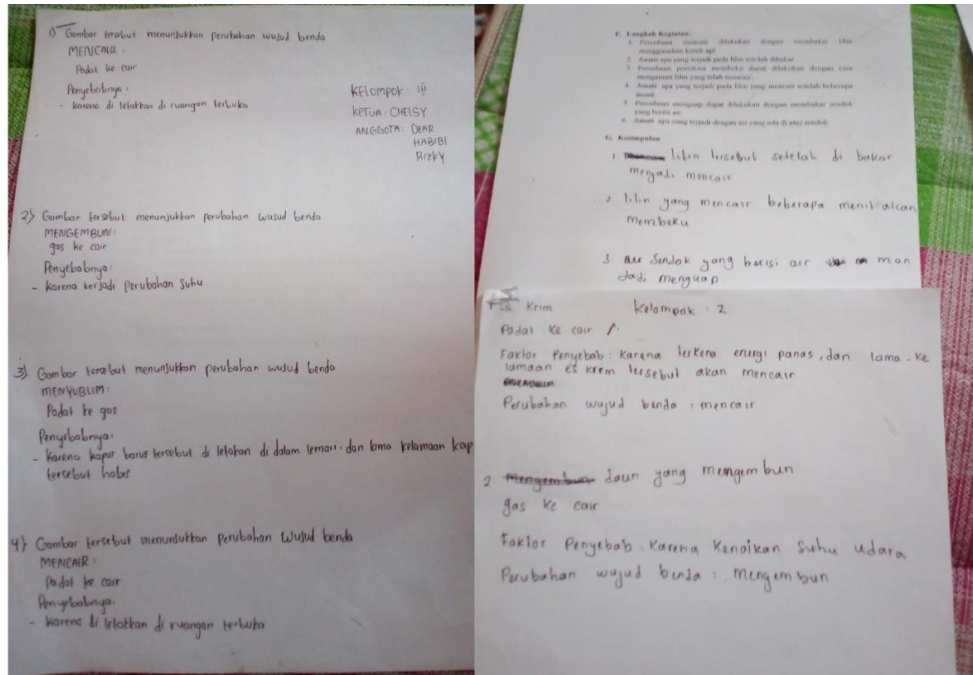 1) Gambar tersebut menunjukkan perubahan wujud benda
MENCAIR :
Padat ke cair
Penyebabnya :
- karena di letakkan di ruangan terbuka
KELOMPOK : III
KETUA : CHELSY
ANGGOTA : DEAR
HABIBI
RIZKY
2) Gambar tersebut menunjukkan perubahan wujud benda
MENGEMBUN :
gas ke cair
Penyebabnya :
- Karena terjadi perubahan suhu
3) Gambar tersebut menunjukkan perubahan wujud benda
MENYUBLIM :
Padat ke gas
Penyebabnya :
- Karena kapur barus tersebut di letakan di dalam lemari. dan lama kelamaan kap
tersebut habis
4) Gambar tersebut menunjukkan perubahan wujud benda
MENCAIR :
Padat ke cair
Penyebabnya.
- Karena di letakkan di ruangan terbuka
F. Langkah Kegiatan:
1. Percobaan mencair dilakukan dengan membakar lilin
menggunakan korek api.
2. Amati apa yang terjadi pada lilin setelah dibakar.
3. Percobaan peristiwa membeku dapat dilakukan dengan cara
mengamati lilin yang telah mencair.
4. Amati apa yang terjadi pada lilin yang mencair setelah beberapa
menit.
5. Percobaan menguap dapat dilakukan dengan membakar sendok
yang berisi air.
6. Amati apa yang terjadi dengan air yang ada di atas sendok.
G. Kesimpulan
1. lilin tersebut setelah di bakar
menjadi mencair
2. lilin yang mencair beberapa menit akan
membeku
3 Sendok yang berisi air man
dadi menguap
Krim
Kelompok : 2
Padat ke cair
Faktor Penyebab : Karena terkena energi panas, dan lama - ke
lamaan es krim tersebut akan mencair
Perubahan wujud benda : mencair
2. daun yang mengembun
gas ke cair
Faktor Penyebab : Karena Kenaikan Suhu udara
Perubahan wujud benda : Mengembun